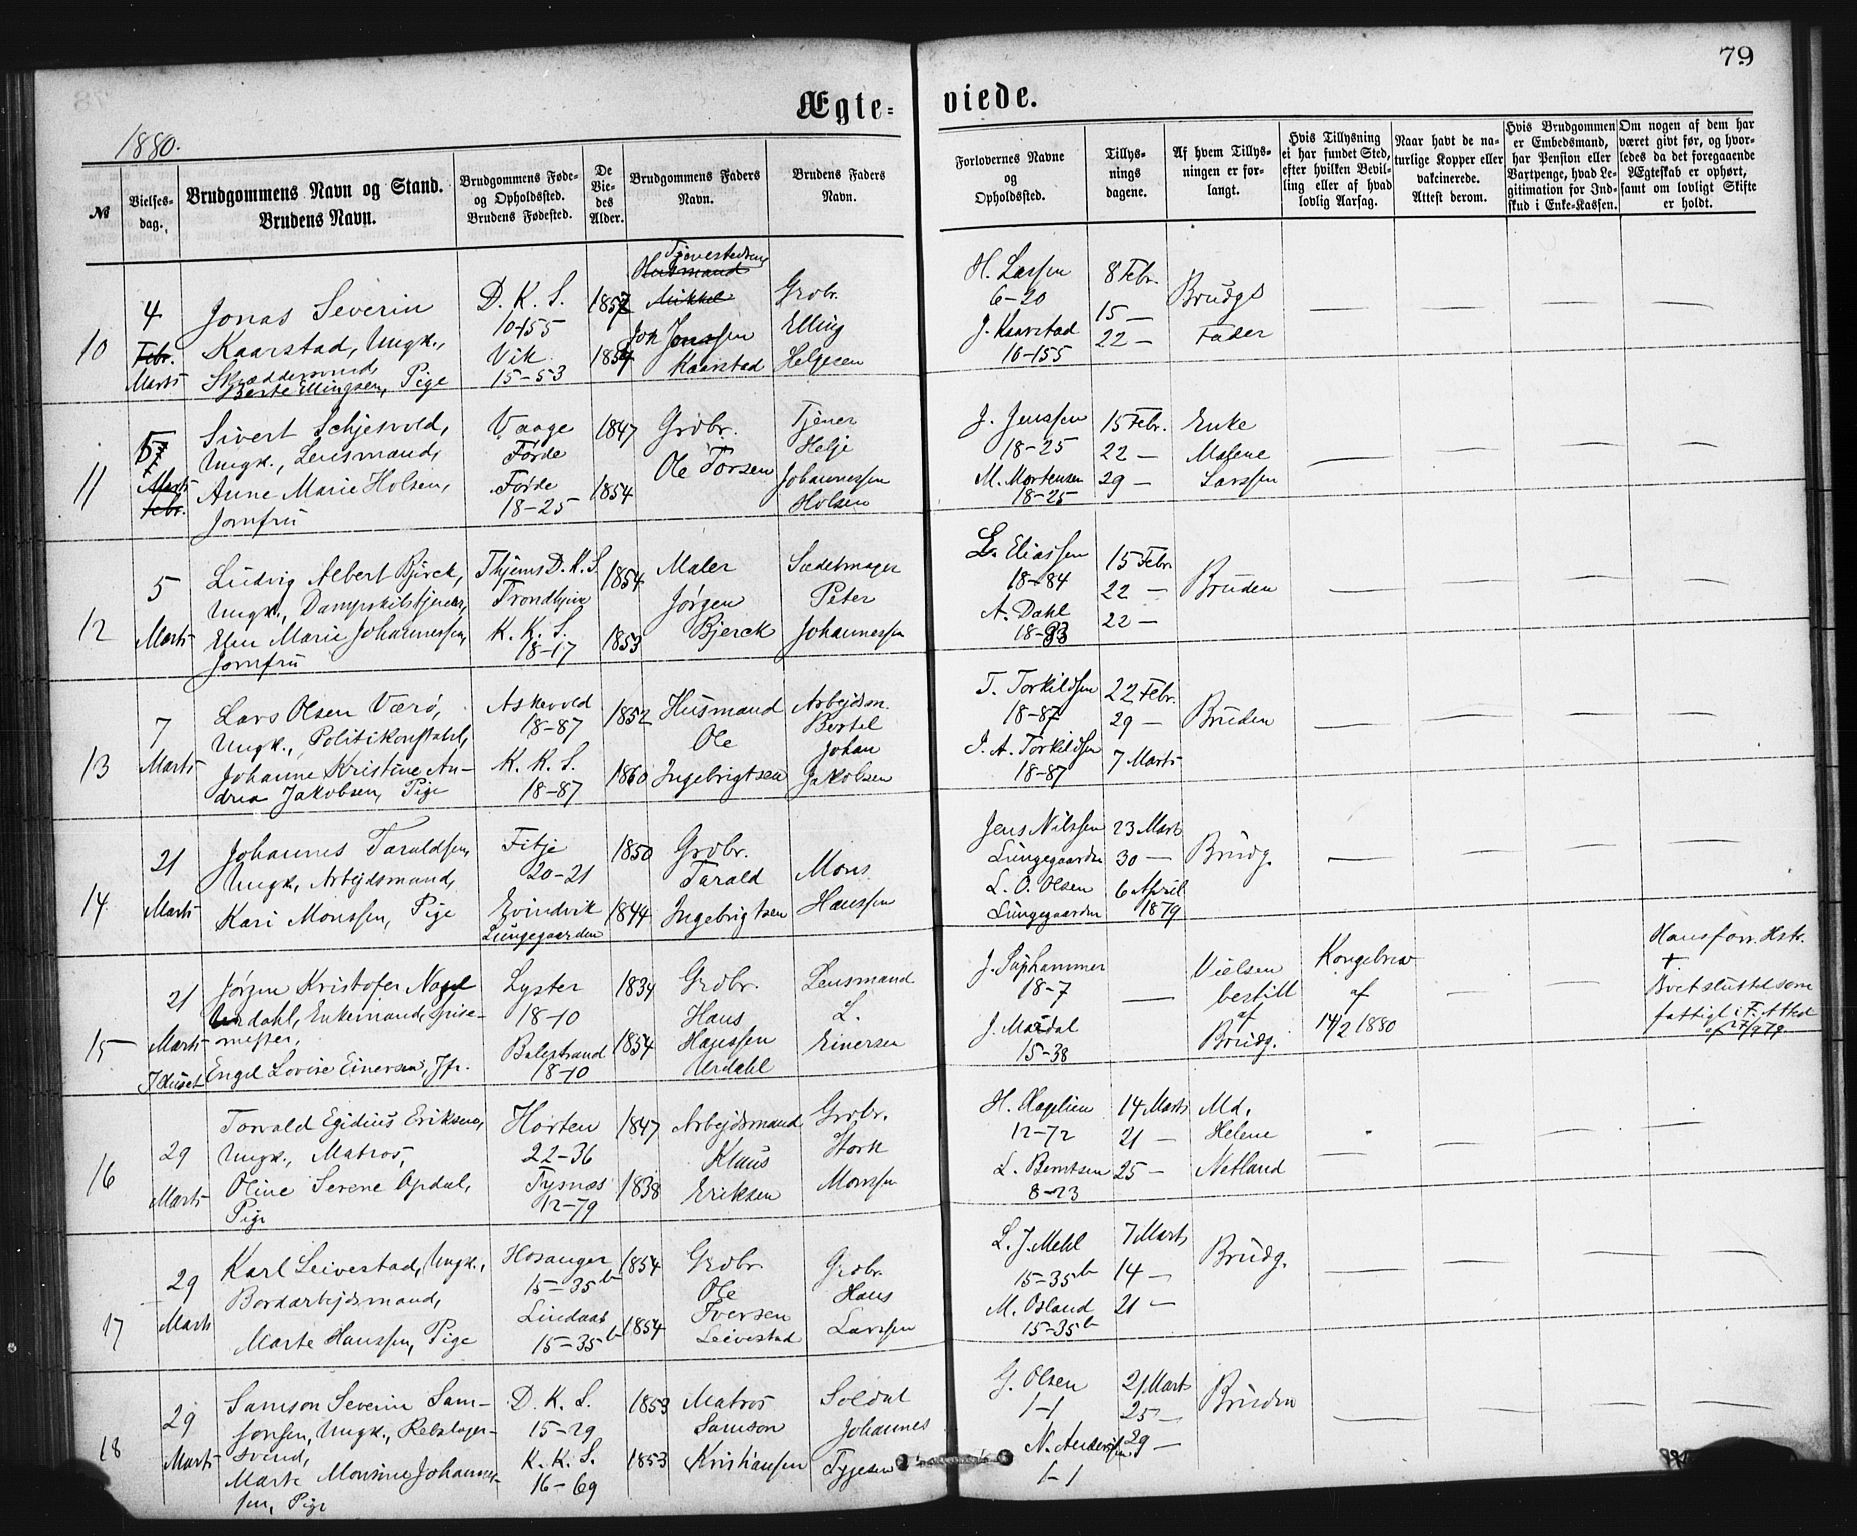 79
Ægte-
viede.
1880.
№
Vielses-
dag.
Brudgommens Navn og Stand.
Brudens Navn.
Brudgommens Føde-
og Opholdssted.
Brudens Fødested.
De
Vie-
des
Alder.
Brudgommens Faders
Navn.
Brudens Faders
Navn.
Forlovernes Navne
og
Opholdssted.
Tillys-
nings
dagene.
Af hvem Tillys-
ningen er for-
langt.
Hvis Tillysning
ei har fundet Sted,
efter hvilken Bevil-
ling eller af hvad
lovlig Aarsag.
Naar havt de na-
turlige Kopper eller
vakcinerede.
Attest derom.
Hvis Brudgommen
er Embedsmand,
har Pension eller
Vartpenge, hvad Le-
gitimation for Ind-
skud i Enke-Kassen.
Om nogen af dem har
været givt før, og hvor-
ledes da det foregaaende
Ægteskab er ophørt,
samt om lovligt Skifte
er holdt.
10
4
Febr.
Marts
Jonas Severin
Kaarstad, Ungk.,
Skræddersvend,
Berte Ellingsen, Pige
D. K. S.
10-155
Vik
15-53
1857
1854
Husmand
Mikkel
Joh Jonssen
Kaarstad
Grdbr.
Elling
Helgesen
H. Lassen
6-20
J. Kaarstad
10-155
8 Febr.
15 —
22 —
Brudgs
Fader
11
Marts
Febr.
Sivert Schjesvold,
Ungk., Lensmand,
Anne Marie Holsen,
Jomfru
Vaage
Førde
Førde
18-25
1847
1854
Grdbr.
Ole Torsen
Tjener
Helje
Johannessen
Holsen
J. Jenssen
18-25
M. Mortensen
18-25
15 Febr.
22 —
29 —
Enke
Malene
Larssen
12
5
Marts
Ludvig Albert Bjerck,
Ungk., Dampskibstjener,
Elen Marie Johannessen,
Jomfru
Thjems D. K. S.
Trondhjem
K. K. S.
18-17
1854
1853
Maler
Jørgen
Bjerck
Sadelmager
Peter
Johannessen
L. Eliassen
18-84
A. Dahl
18-33
15 Febr.
22 —
22 —
Bruden
13
7
Marts
Lars Olsen Værø,
Ungk., Politikonstabel,
Johanne Kristine An-
drea Jakobsen, Pige
Askevold
18-87
K. K. S.
18-87
1852
1860
Husmand
Ole
Ingebrigtsen
Arbejdsm.
Bertel
Johan
Jakobsen
T. Torkildsen
18-87
J. A. Torkildsen
18-87
22 Febr.
29 —
7 Marts
Bruden
14
21
Marts
Johannes Taraldsen,
Ungk., Arbejdsmand,
Kari Monssen, Pige
Fitje
20-21
Evindvik
Lungegaarden
1850
1844
Grdbr.
Tarald
Ingebrigtsen
Mons
Hanssen
Jens Nilssen
Lungegaarden
L. O. Olsen
Lungegaarden
23 Marts
30 —
6 April
1879
Brudg.
15
21
Marts
I Huset
Jørgen Kristofer Nagel
Urdahl, Enkemand, Spise-
mester,
Engel Lovise Einersen, Jfr.
Lyster
18-10
Balestrand
18-10
1834
1854
Grdbr.
Hans
Hanssen
Urdahl
Lensmand
L.
Einersen
18-7
J. Mardal
15-38
Vielsen
bestilt
af
Brudg.
Kongebrev
af
14/2 1880
Hans forr. Hstr.
+
16
29
Marts
Torvald Egidius Eriksen,
Ungk., Matros,
Oline Serene Opdal,
Pige
Horten
22-36
Tysnæs
12-79
1847
1838
Arbejdsmand
Klaus
Eriksen
Grdbr.
Stork
Monssen
H. Hagelien
12-72
L. Berntsen
8-23
14 Marts
21 —
25 —
Md.
Helene
Netland
17
29
Marts
Karl Leivestad, Ungk.,
Bordarbejdsmand,
Marte Hanssen, Pige
Hosanger
15-35b
Lindaas
15-35b
1854
1854
Grdbr.
Ole
Iversen
Leivestad
Grdbr.
Hans
Larssen
L. J. Mehl
15-35b
M. Osland
15-35b
7 Marts
14 —
21 —
Brudg.
18
29
Marts
Samson Severin Sam-
sonsen, Ungk., Rebslager-
svend,
Marte Monsine Johannes-
sen, Pige
D. K. S.
15-29
K. K. S.
16-69
1853
1853
Matros
Samson
Kristiansen
Soldat
Johannes
Tygesen
G. Olsen
1-1
N. Andersen
1-1
21 Marts
25 —
29 —
Bruden